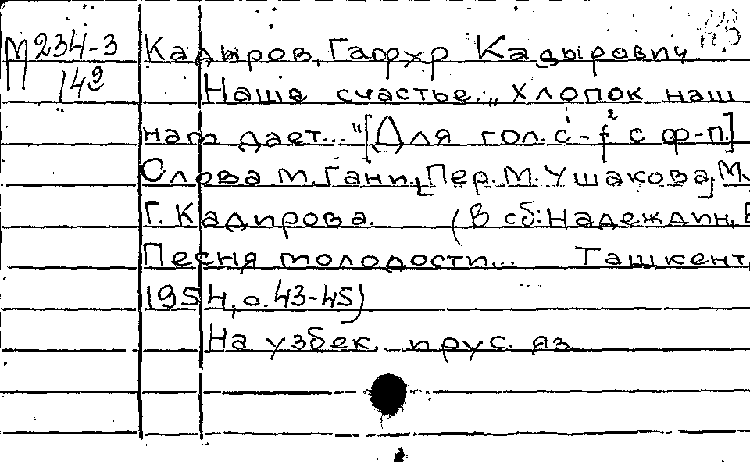 М 234-3 Кадыров, Гафур Кадырович
142 Наше счастье. „Хлопок наш
нам дает..."[Для гол. c¹-f² с ф-п.]
Слова М. Гани, [Пер. М. Ушакова], М.
Г. Кадирова. (В сб: Надеждин, Б
Песня молодости... Ташкент,
1954, с. 43-45)
На узбек. и рус. яз